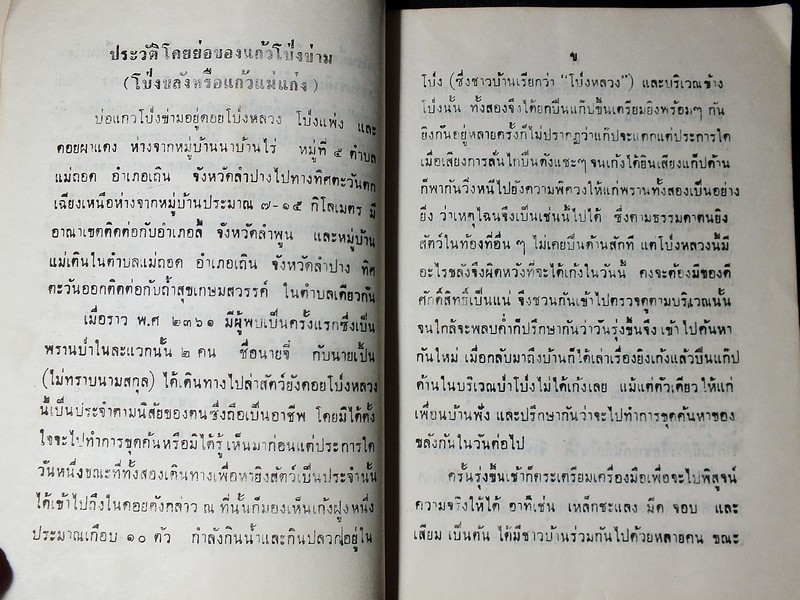 ประวัติโดยย่อของแก้วโป่งข่าม
(โป่งขลังหรือแก้วแม่แก่ง)
บ่อแก้วโป่งข่ามอยู่ดอยโป่งหลวง โป่งแพ่ง และ
ดอยผาแดง ห่างจากหมู่บ้านนาบ้านไร่ หมู่ที่ ๕ ตำบล
แม่ถอด อำเภอเถิน จังหวัดลำปางไปทางทิศตะวันตก
เฉียงเหนือห่างจากหมู่บ้านประมาณ ๗-๑๕ กิโลเมตร มี
อาณาเขตติดต่อกับอำเภอลี้ จังหวัดลำพูน และหมู่บ้าน
แม่เตินในตำบลแม่ถอด อำเภอเถิน จังหวัดลำปาง ทิศ
ตะวันออกติดต่อกับถ้ำสุขเกษมสวรรค์ ในตำบลเดียวกัน
เมื่อราว พ.ศ ๒๓๖๑ มีผู้พบเป็นครั้งแรกซึ่งเป็น
พรานป่าในละแวกนั้น ๒ คน ชื่อนายจี๋ กับนายเป็น
(ไม่ทราบนามสกุล) ได้เดินทางไปล่าสัตว์ยังดอยโป่งหลวง
นี้เป็นประจำตามนิสัยของตนซึ่งถือเป็นอาชีพ โดยมิได้ตั้ง
ใจจะไปทำการขุดค้นหรือมิได้รู้เห็นมาก่อนแต่ประการใด
วันหนึ่งขณะที่ทั้งสองเดินทางเพื่อหายิงสัตว์เป็นประจำนั้น
ได้เข้าไปถึงในดอยดังกล่าว ณ ที่นั้นก็มองเห็นเก้งฝูงหนึ่ง
ประมาณเกือบ ๑๐ ตัว กำลังกินน้ำและกินปลวกอยู่ใน
ข
โป่ง (ซึ่งชาวบ้านเรียกว่า "โป่งหลวง") และบริเวณข้าง
โป่งนั้น ทั้งสองจึงได้ยกปืนแก๊ปขึ้นเตรียมยิงพร้อมๆ กัน
ยิงกันอยู่หลายครั้งก็ไม่ปรากฏว่าแก๊ปจะแตกแต่ประการใด
เมื่อเสียงการลั่นไกปืนดังแชะๆ จนเก้งได้ยินเสียงแก๊ปด้าน
ก็พากันวิ่งหนีไปยังความพิศวงให้แก่พรานทั้งสองเป็นอย่าง
ยิ่ง ว่าเหตุไฉนจึงเป็นเช่นนี้ไปได้ ซึ่งตามธรรมดาตนยิง
สัตว์ในท้องที่อื่น ๆ ไม่เคยปืนด้านสักที แต่โป่งหลวงนี้มี
อะไรขลังจึงผิดหวังที่จะได้เก้งในวันนี้ คงจะต้องมีของดี
ศักดิ์สิทธิ์เป็นแน่ จึงชวนกันเข้าไปตรวจดูตามบริเวณนั้น
จนใกล้จะพลบค่ำก็ปรึกษากันว่าวันรุ่งขึ้นจึง เข้าไปค้นหา
กันใหม่ เมื่อกลับมาถึงบ้านก็ได้เล่าเรื่องยิงเก้งแล้วปืนแก๊ป
ด้านในบริเวณป่าโป่งไม่ได้เก้งเลย แม้แต่ตัวเดียว ให้แก่
เพื่อนบ้านฟัง และปรึกษากันว่าจะไปทำการขุดค้นหาของ
ขลังกันในวันต่อไป
ครั้นรุ่งขึ้นเช้าก็ตระเตรียมเครื่องมือเพื่อจะไปพิสูจน์
ความจริงให้ได้ อาทิเช่น เหล็กชะแลง มีด จอบ และ
เสียม เป็นต้น ได้มีชาวบ้านร่วมกันไปด้วยหลายคน ขณะ